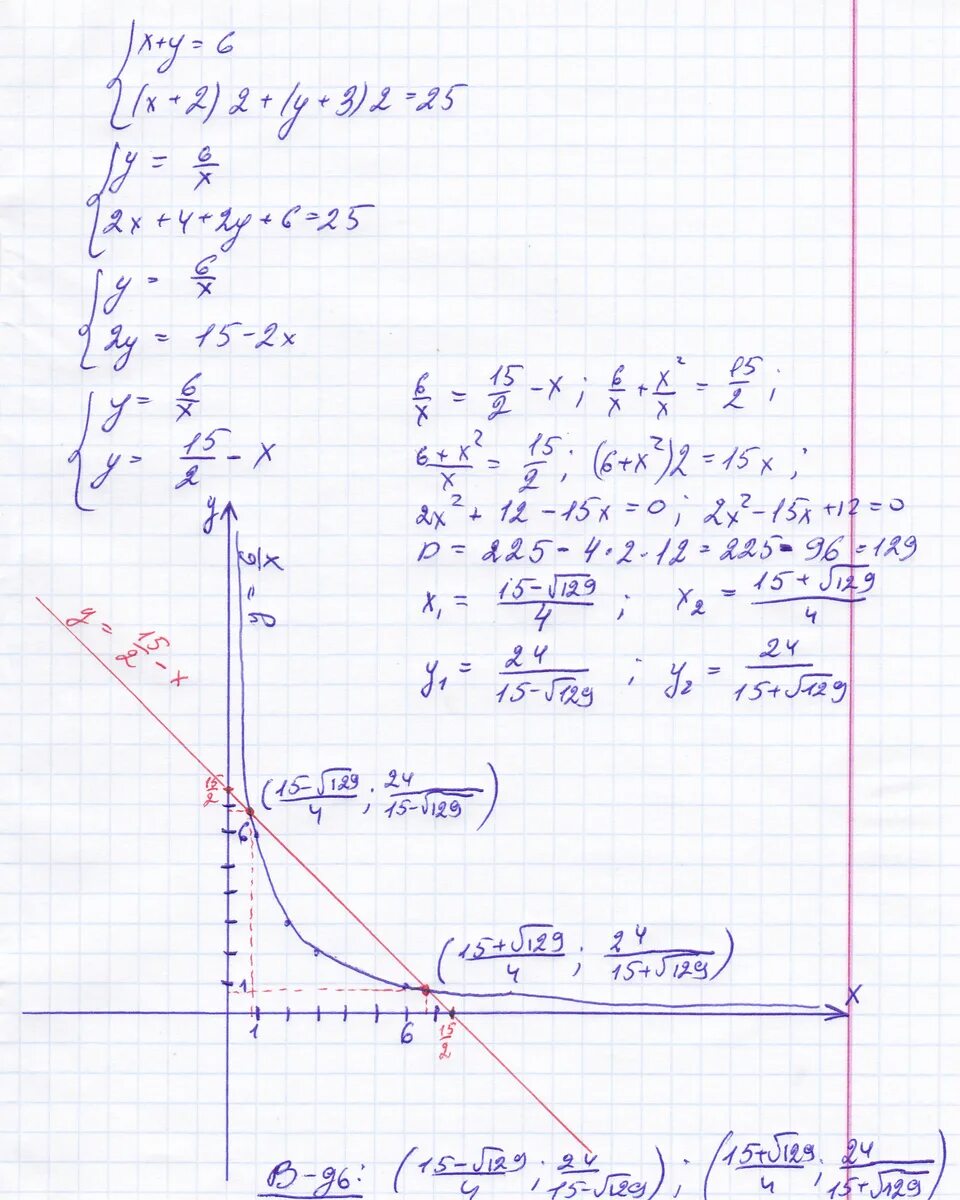 x+y = 6
(x+2)2+(y+3)2=25
y = 6/x
2x+4+2y+6=25
y = 6/x
2y = 15-2x
y = 6/x
y = 15/2 - x
6/x = 15/2 - x ; 6/x + x²/x = 15/2 ;
(6+x²)/x = 15/2 ; (6+x²)2 = 15x ;
2x² + 12 - 15x = 0 ; 2x² - 15x + 12 = 0
D = 225 - 4·2·12 = 225 - 96 = 129
x₁ = (15-√129)/4 ; x₂ = (15+√129)/4
y₁ = 24/(15-√129) ; y₂ = 24/(15+√129)
y
y = 6/x
y = 15/2 - x
15/2
((15-√129)/4 ; 24/(15-√129))
6
((15+√129)/4 ; 24/(15+√129))
1
x
1 6 15/2
В-дь: ((15-√129)/4 ; 24/(15-√129)) ; ((15+√129)/4 ; 24/(15+√129))